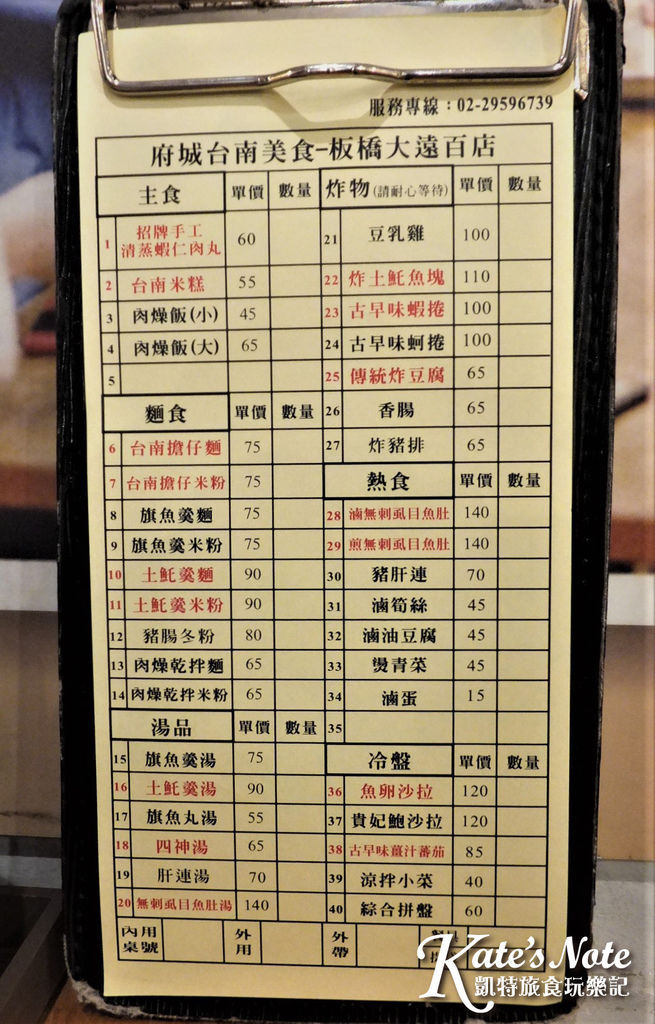 服務專線：02-29596739
府城台南美食-板橋大遠百店
主食 單價 數量
1 招牌手工
清蒸蝦仁肉丸 60
2 台南米糕 55
3 肉燥飯(小) 45
4 肉燥飯(大) 65
5
麵食 單價 數量
6 台南擔仔麵 75
7 台南擔仔米粉 75
8 旗魚羹麵 75
9 旗魚羹米粉 75
10 土魠羹麵 90
11 土魠羹米粉 90
12 豬腸冬粉 80
13 肉燥乾拌麵 65
14 肉燥乾拌米粉 65
湯品 單價 數量
15 旗魚羹湯 75
16 土魠羹湯 90
17 旗魚丸湯 55
18 四神湯 65
19 肝連湯 70
20 無刺虱目魚肚湯 140
炸物(請耐心等待) 單價 數量
21 豆乳雞 100
22 炸土魠魚塊 110
23 古早味蝦捲 100
24 古早味蚵捲 100
25 傳統炸豆腐 65
26 香腸 65
27 炸豬排 65
熱食 單價 數量
28 滷無刺虱目魚肚 140
29 煎無刺虱目魚肚 140
30 豬肝連 70
31 滷筍絲 45
32 滷油豆腐 45
33 燙青菜 45
34 滷蛋 15
35
冷盤 單價 數量
36 魚卵沙拉 120
37 貴妃鮑沙拉 120
38 古早味薑汁蕃茄 85
39 涼拌小菜 40
40 綜合拼盤 60
內用
桌號
外用
外帶
Kate's Note
凱特旅食玩樂記